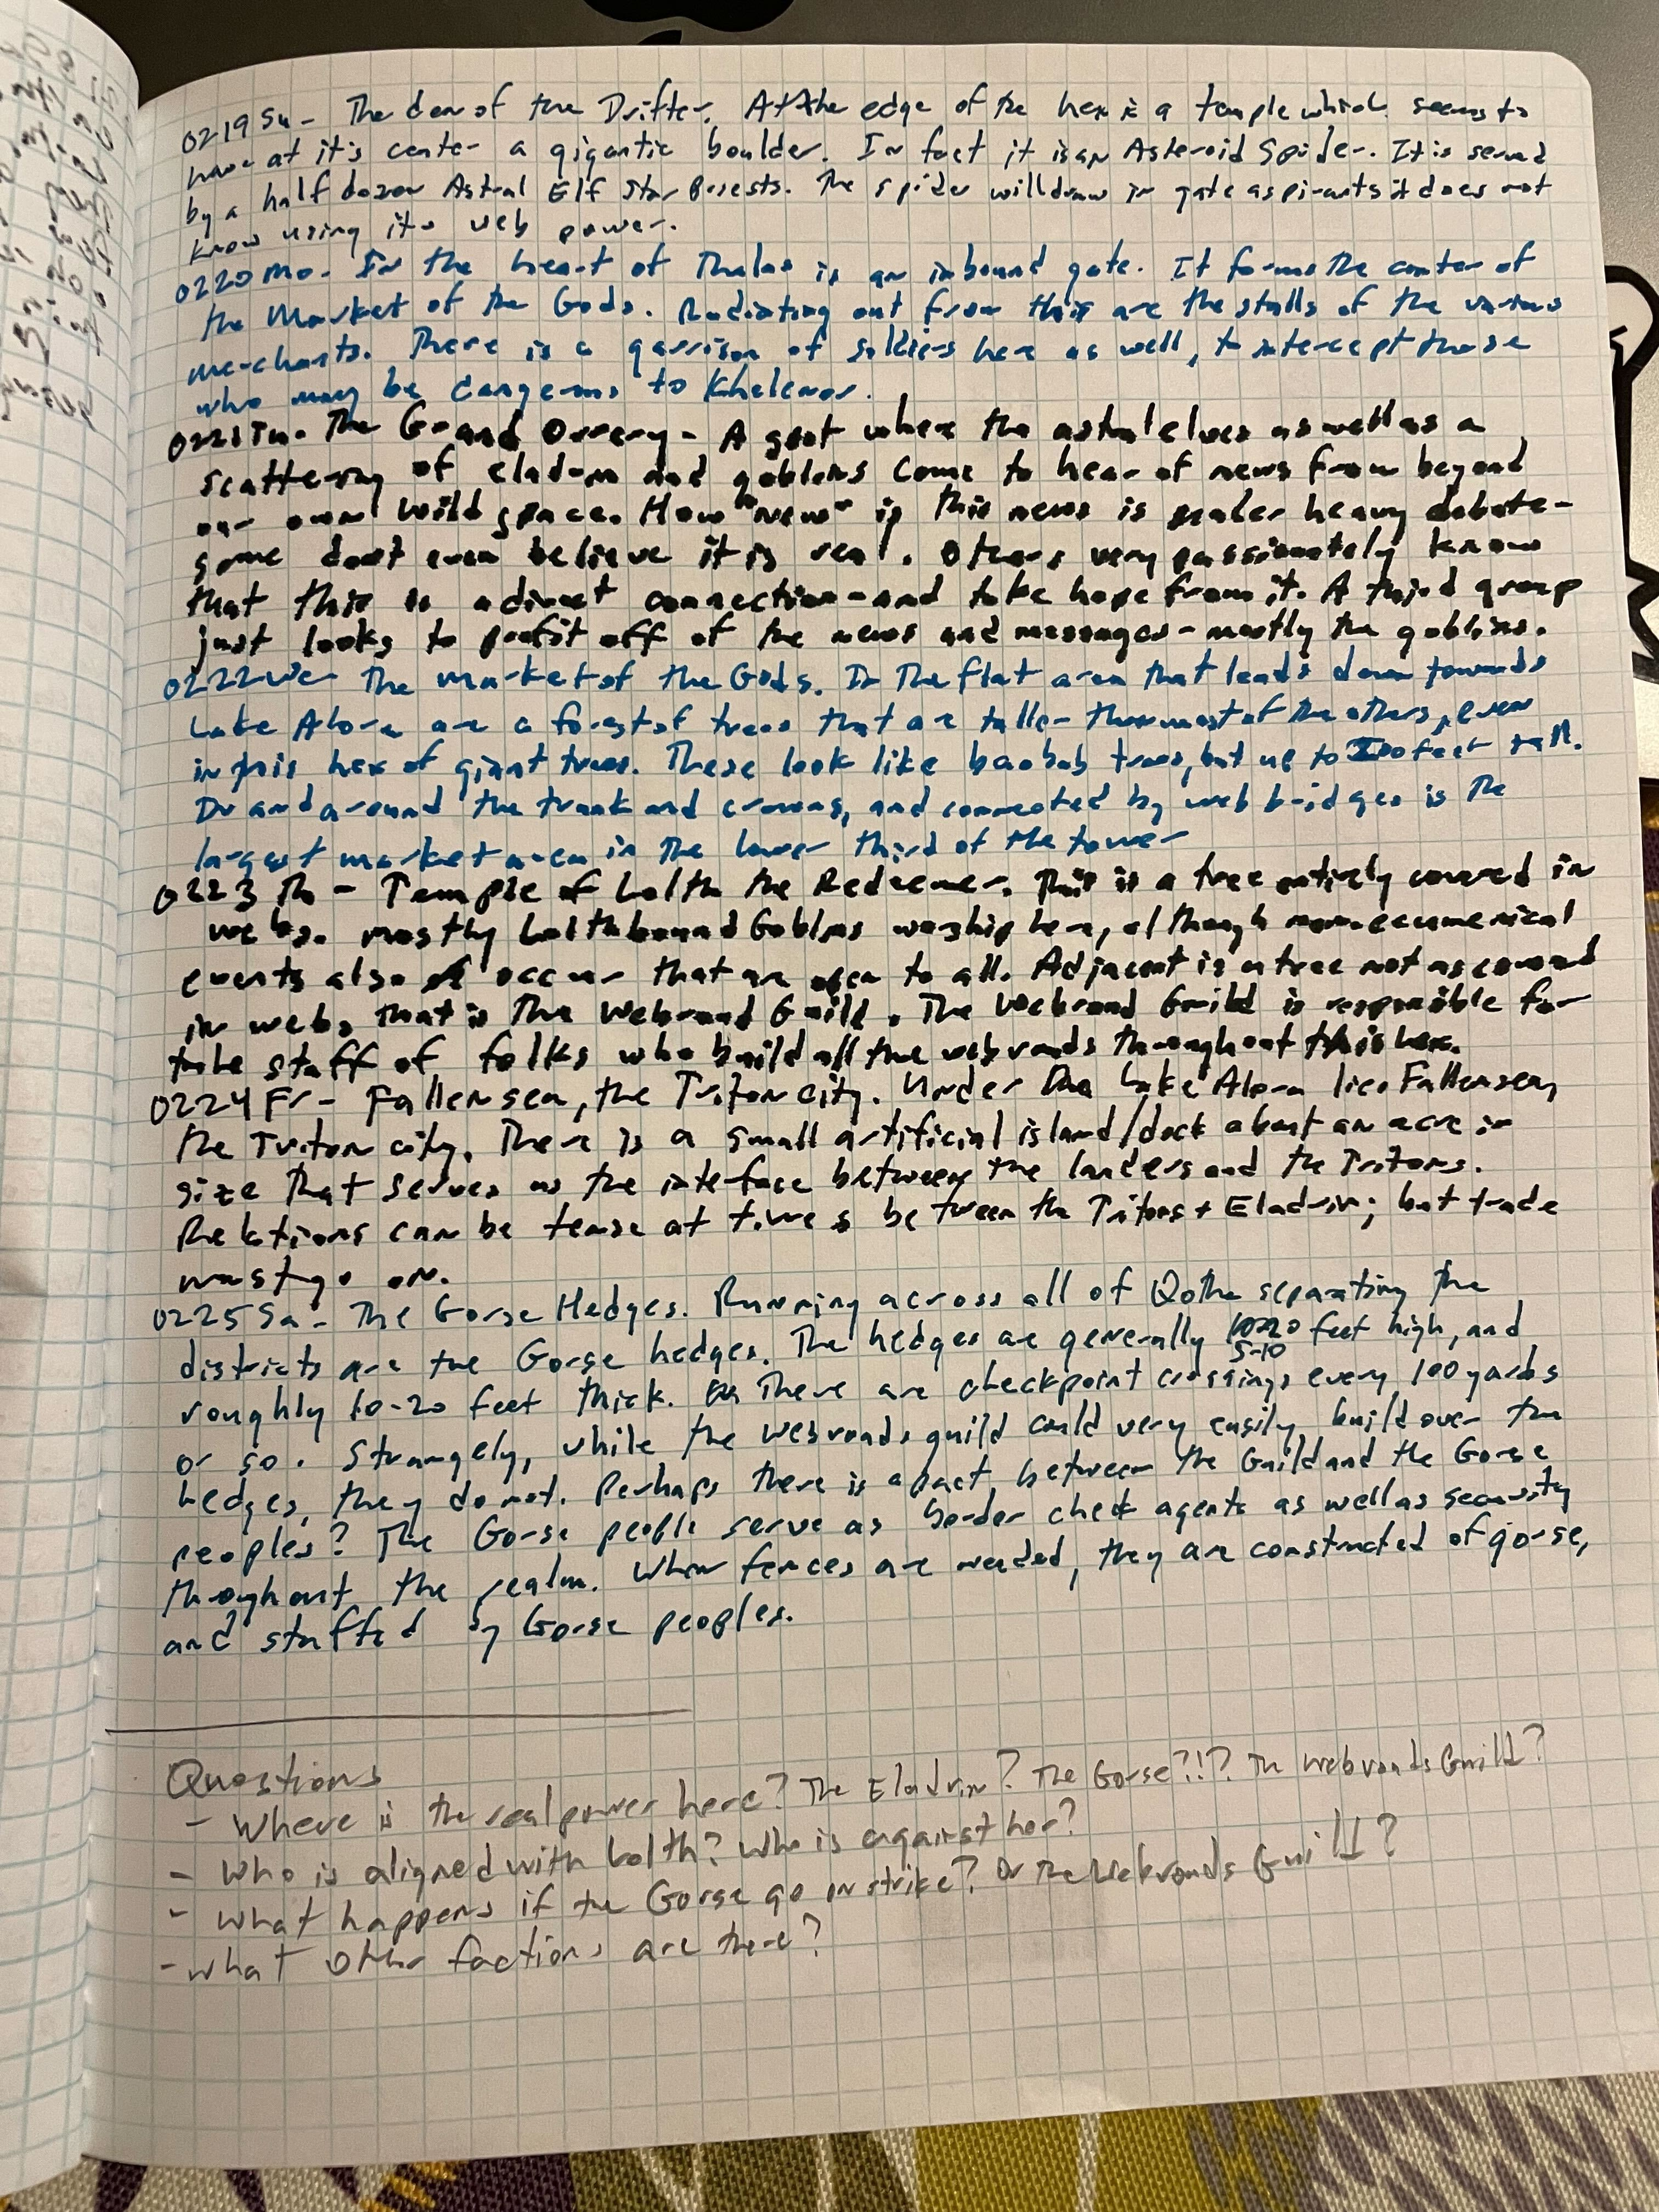 0219 Su - The den of the Drifter. At the edge of the hex is a temple which seems to
have at it's center a gigantic boulder. In fact it is an Asteroid Spider. It is served
by a half dozen Astral Elf Star Priests. The spider will draw in gate aspirants it does not
know using its web power.
0220 Mo - In the heart of Thalas is an inbound gate. It forms the center of
the Market of the Gods. Radiating out from this are the stalls of the various
merchants. There is a garrison of soldiers here as well, to intercept those
who may be dangerous to Khelenor.
0221 Tu - The Grand Orrery - A spot where the astral elves as well as a
scattering of eladrin and goblins come to hear of news from beyond
our own wild space. How "new" is this news is under heavy debate -
some don't even believe it is real. Others very passionately know
that this is a direct connection - and take hope from it. A third group
just looks to profit off of the news and messages - mostly the goblins.
0222 We - The Market of the Gods. In The flat area that leads down towards
Lake Alora are a forest of trees that are taller than most of the others, even
in this hex of giant trees. These look like baobab trees, but up to feet tall.
In and around the trunk and crowns, and connected by web bridges is the
largest market area in the lower third of the tower
0223 Th - Temple of Lolth the Redeemer. This is a tree entirely covered in
webs. Mostly Lolthbound Goblins worship here, although more ecumenical
events also occur that are open to all. Adjacent is a tree not as covered
in webs that is The Webroad Guild. The Webroad Guild is responsible for
the staff of folks who build all the webroads throughout this hex.
0224 Fr - Fallensea, the Triton city. Under The Lake Alora lies Fallensea,
the Triton city. There is a small artificial island/dock about an acre in
size that serves as the interface between the landers and the Tritons.
Relations can be tense at times between the Tritons + Eladrin; but trade
must go on.
0225 Sa - The Gorse Hedges. Running across all of Qothe separating the
districts are the Gorse hedges. The hedges are generally 5-10 feet high, and
roughly 10-20 feet thick. There are checkpoint crossings every 100 yards
or so. Strangely, while the webroads guild could very easily build over the
hedges, they do not. Perhaps there is a pact between the Guild and the Gorse
peoples? The Gorse people serve as border check agents as well as security
throughout the realm. When fences are needed, they are constructed of gorse,
and staffed by Gorse peoples.
Questions
- Where is the real power here? The Eladrin? The Gorse?!? The Webroads Guild?
- Who is aligned with Lolth? Who is against her?
- What happens if the Gorse go on strike? Or The Webroads Guild?
- What other factions are there?